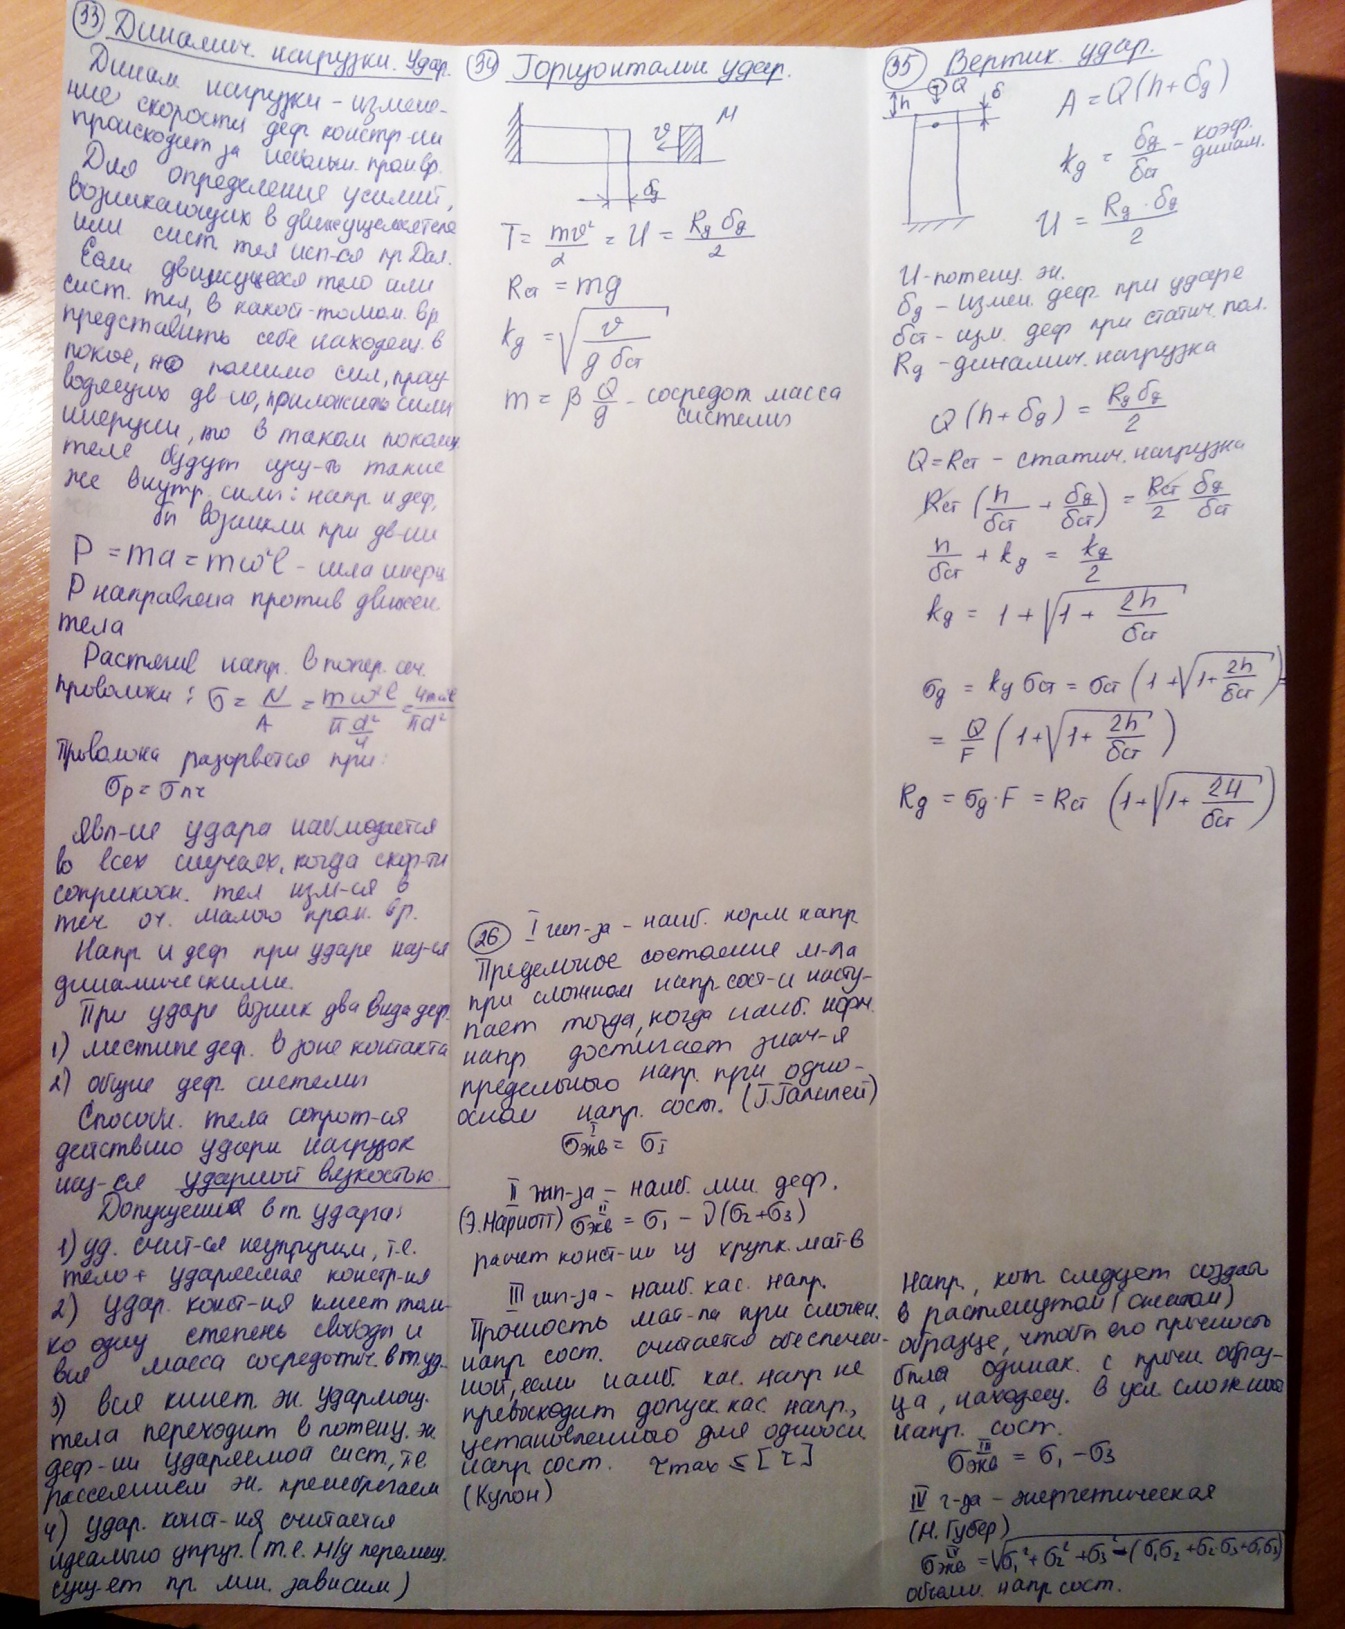 33 Динамич. нагрузки. Удар.
Динам нагрузки – измене-
ние скорости деф. констр-ии
происходит за небольш. пром вр.
Для определения усилий,
возникающих в движущемся теле
или сист. тел исп-ся пр Дал.
Если движущееся тело или
сист. тел, в какой-то мом. вр.
представить себе находящ. в
покое, но помимо сил, прои
водящих дв-ие, приложить силы
инерции, то в таком покоящ.
теле будут сущ-ть такие
же внутр. силы: напр и деф,
бы возникли при дв-ии
P = ma = mω²l – сила инерц
P направлена против движен.
тела
Растягив напр. в попер. сеч.
проволоки: σ = N/A = mω²l/(πd²/4) = 4mω²l/πd²
Проволока разорвется при:
σр = σпч
Явл-ие удара наблюдается
во всех случаях, когда скор-ти
соприкосн. тел изм-ся в
теч оч. малого пром. вр.
Напр и деф при ударе наз-ся
динамическими.
При ударе возник два вида деф.
1) местные деф. в зоне контакта
2) общие деф. системы
Способн. тела сопрот-ся
действию ударн нагрузок
наз-ся ударной вязкостью
Допущения в т. удара:
1) уд. счит-ся неупругим, т.е.
тело + ударяемая констр-ия
2) удар. конст-ия имеет толь-
ко одну степень свободы и
вся масса сосредоточ. в т. уд.
3) вся кинет. эн ударяющ.
тела переходит в потенц. эн
деф-ии ударяемой сист, т.е.
рассеянием эн. пренебрегаем
4) удар. конст-ия считается
идеально упруг. (т.е. м/у перемещ.
сущ-ет пр. лин. зависим)
34 Горизонтальн удар.
υ M
δg
T = mυ²/2 = U = Rg δg/2
Rст = mg
kg = √(υ/(g δст))
m = β Q/g – сосредот масса
системы
26 I гип-за – наиб. норм напр
Предельное состояние м-ла
при сложном напр. сост-и насту-
пает тогда, когда наиб. норм.
напр достигает знач-я
предельного напр. при одно-
осном напр. сост. (Г. Галилей)
σэкв^I = σI
II гип-за – наиб. лин деф.
(Э. Мариотт) σэкв^II = σ1 – ν(σ2+σ3)
расчет конст-ии из хрупк. мат-в
III гип-за – наиб кас. напр.
Прочность мат-ла при сложн.
напр сост. считается обеспечен-
ной, если наиб. кас. напр не
превосходит допуск. кас. напр.,
установленного для одноосн
напр. сост. τmax ≤ [τ]
(Кулон)
35 Вертик. удар.
h Q δ
A = Q(h + δg)
kg = δg/δст – коэф.
динам.
U = Rg · δg/2
U – потенц. эн.
δg – измен. деф. при ударе
δст – изм. деф при статич. пол.
Rg – динамич. нагрузка
Q(h + δg) = Rg δg/2
Q = Rст – статич. нагрузка
Rст (h/δст + δg/δст) = Rст/2 δg/δст
h/δст + kg = kg/2
kg = 1 + √(1 + 2h/δст)
σg = kg σст = σст (1 + √(1 + 2h/δст)) =
= Q/F (1 + √(1 + 2h/δст))
Rg = σg · F = Rст (1 + √(1 + 2H/δст))
Напр., кот. следует создать
в растянутом (сжатом)
образце, чтобы его прочность
была одинак. с прочн образ-
ца, находящ. в усл. сложного
напр. сост.
σэкв^III = σ1 – σ3
IV г-за – энергетическая
(М. Губер)
σэкв^IV = √(σ1² + σ2² + σ3² – (σ1σ2 + σ2σ3 + σ1σ3))
объемн. напр сост.